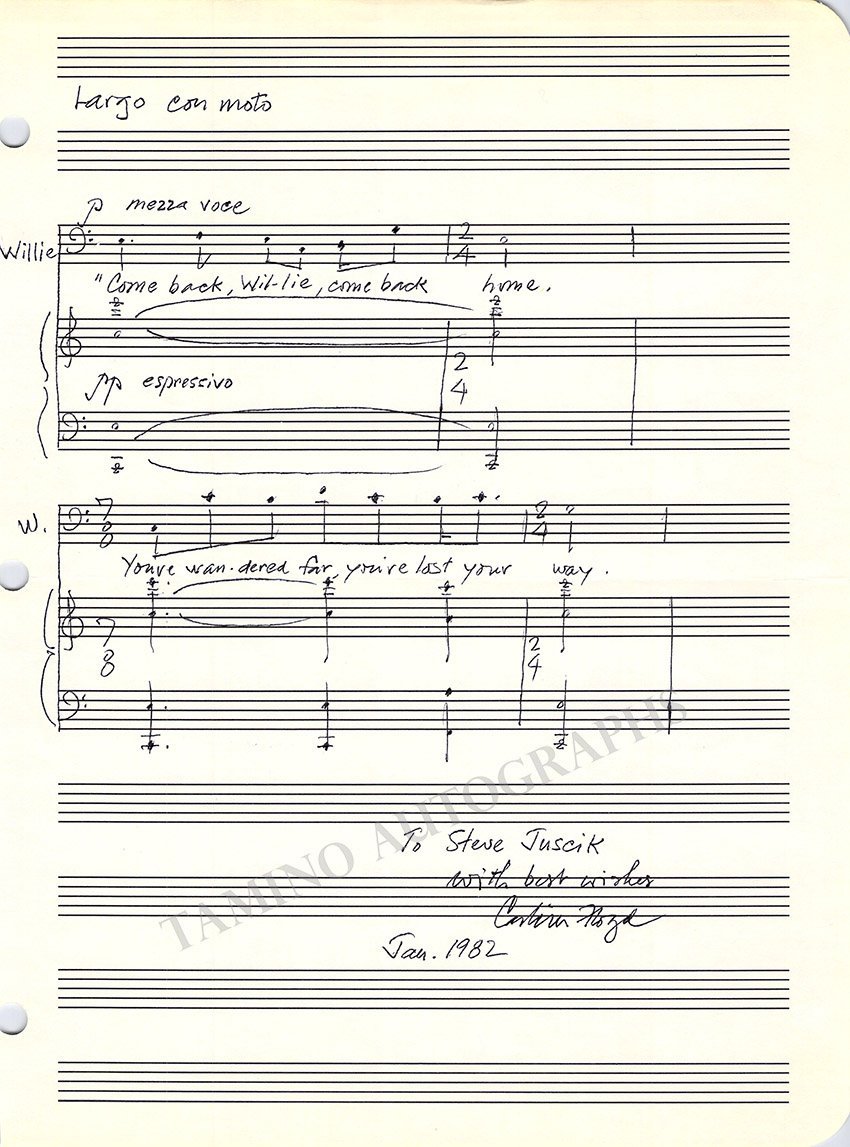 Largo con moto
p mezza voce
Willie
2
4
"Come back, Wil-lie, come back home.
pp espressivo
2
4
W.
7
8
2
4
You've wan-dered far, you've lost your way.
7
8
2
4
TAMINO AUTOGRAPHS
To Steve Juscik
with best wishes
Carlisle Floyd
Jan. 1982